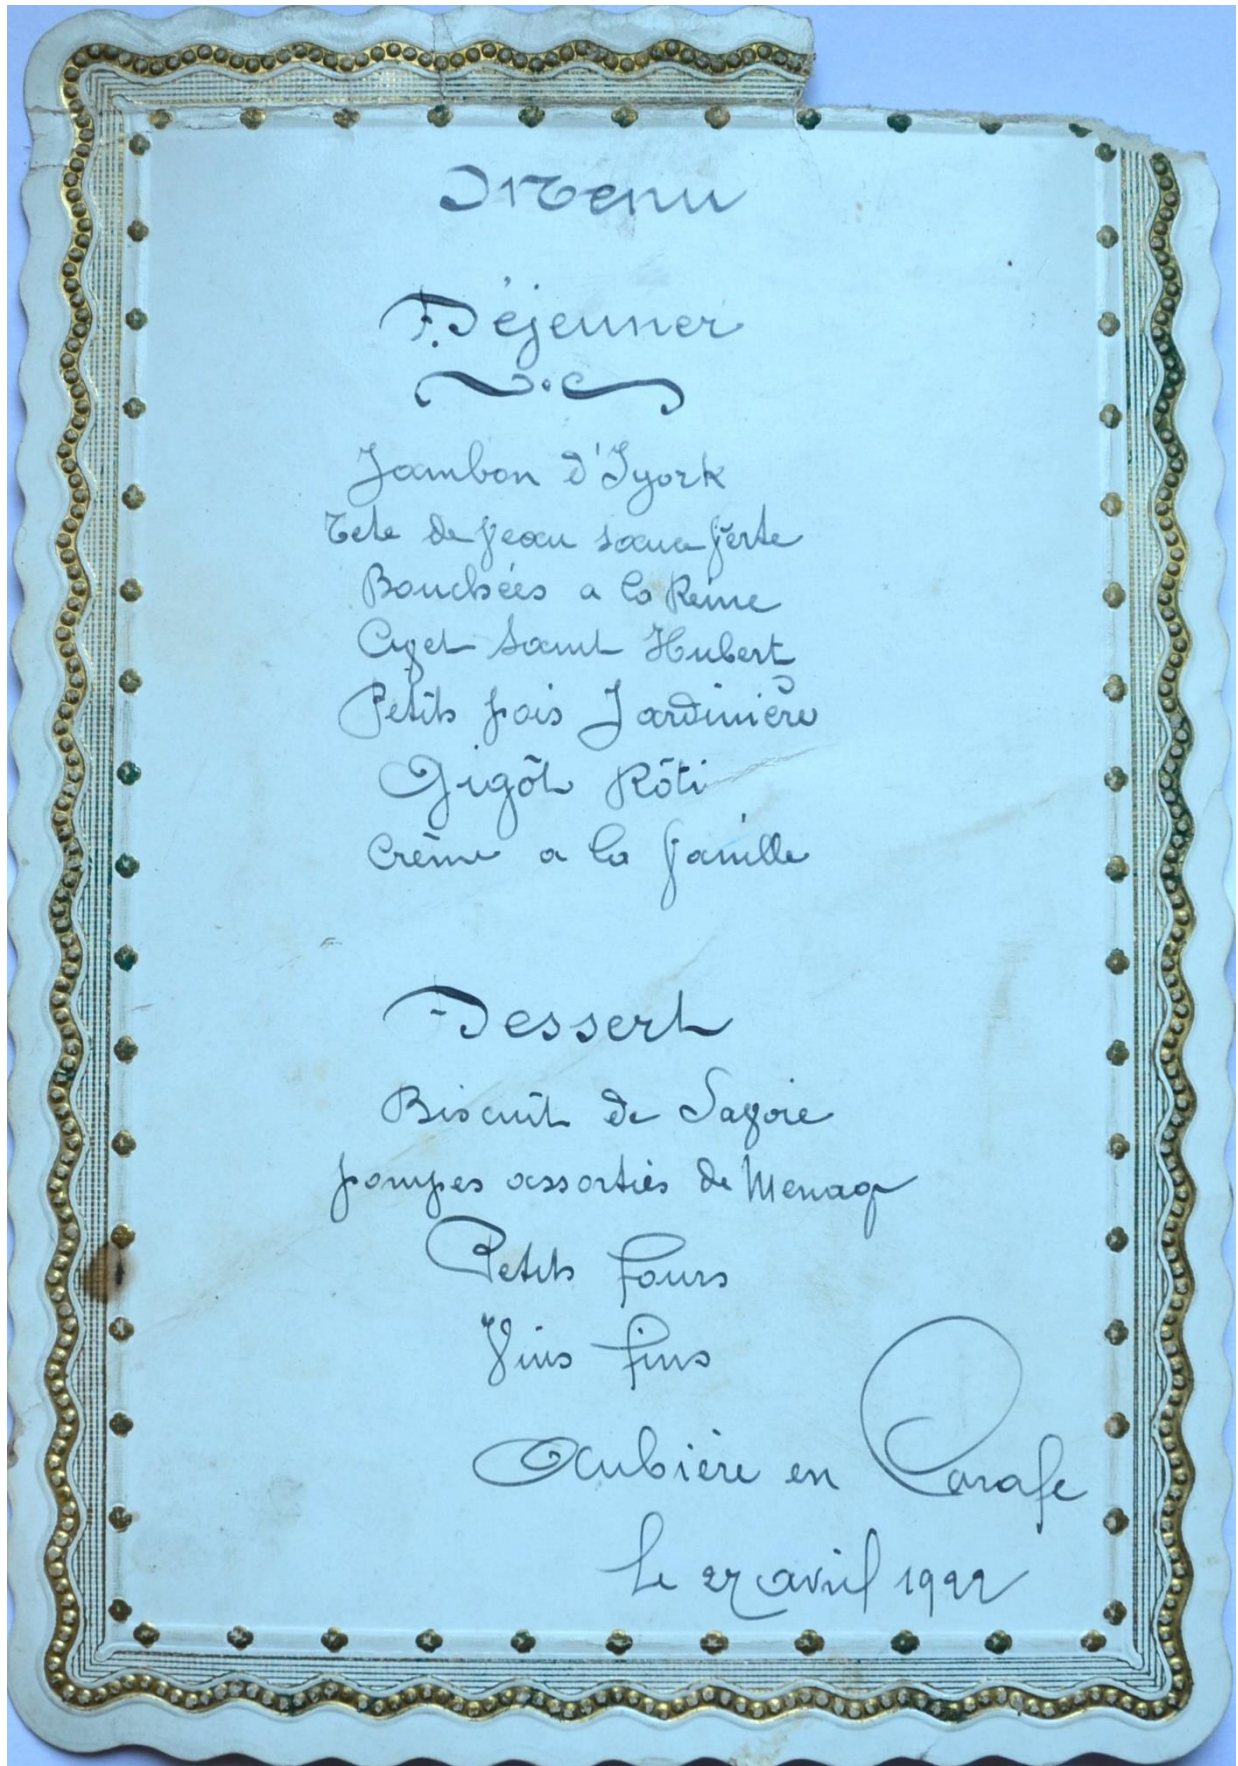 Menu
Déjeuner
Jambon d'Iyork
Tete de Veau sauce Verte
Bouchées a la Reine
Civet Saint Hubert
Petits pois Jardinière
Gigôt Rôti
Crème a la Vanille
Dessert
Biscuit de Savoie
pompes assorties de Menage
Petits Fours
Vins fins
Aubière en Carafe
le 27 avril 1922